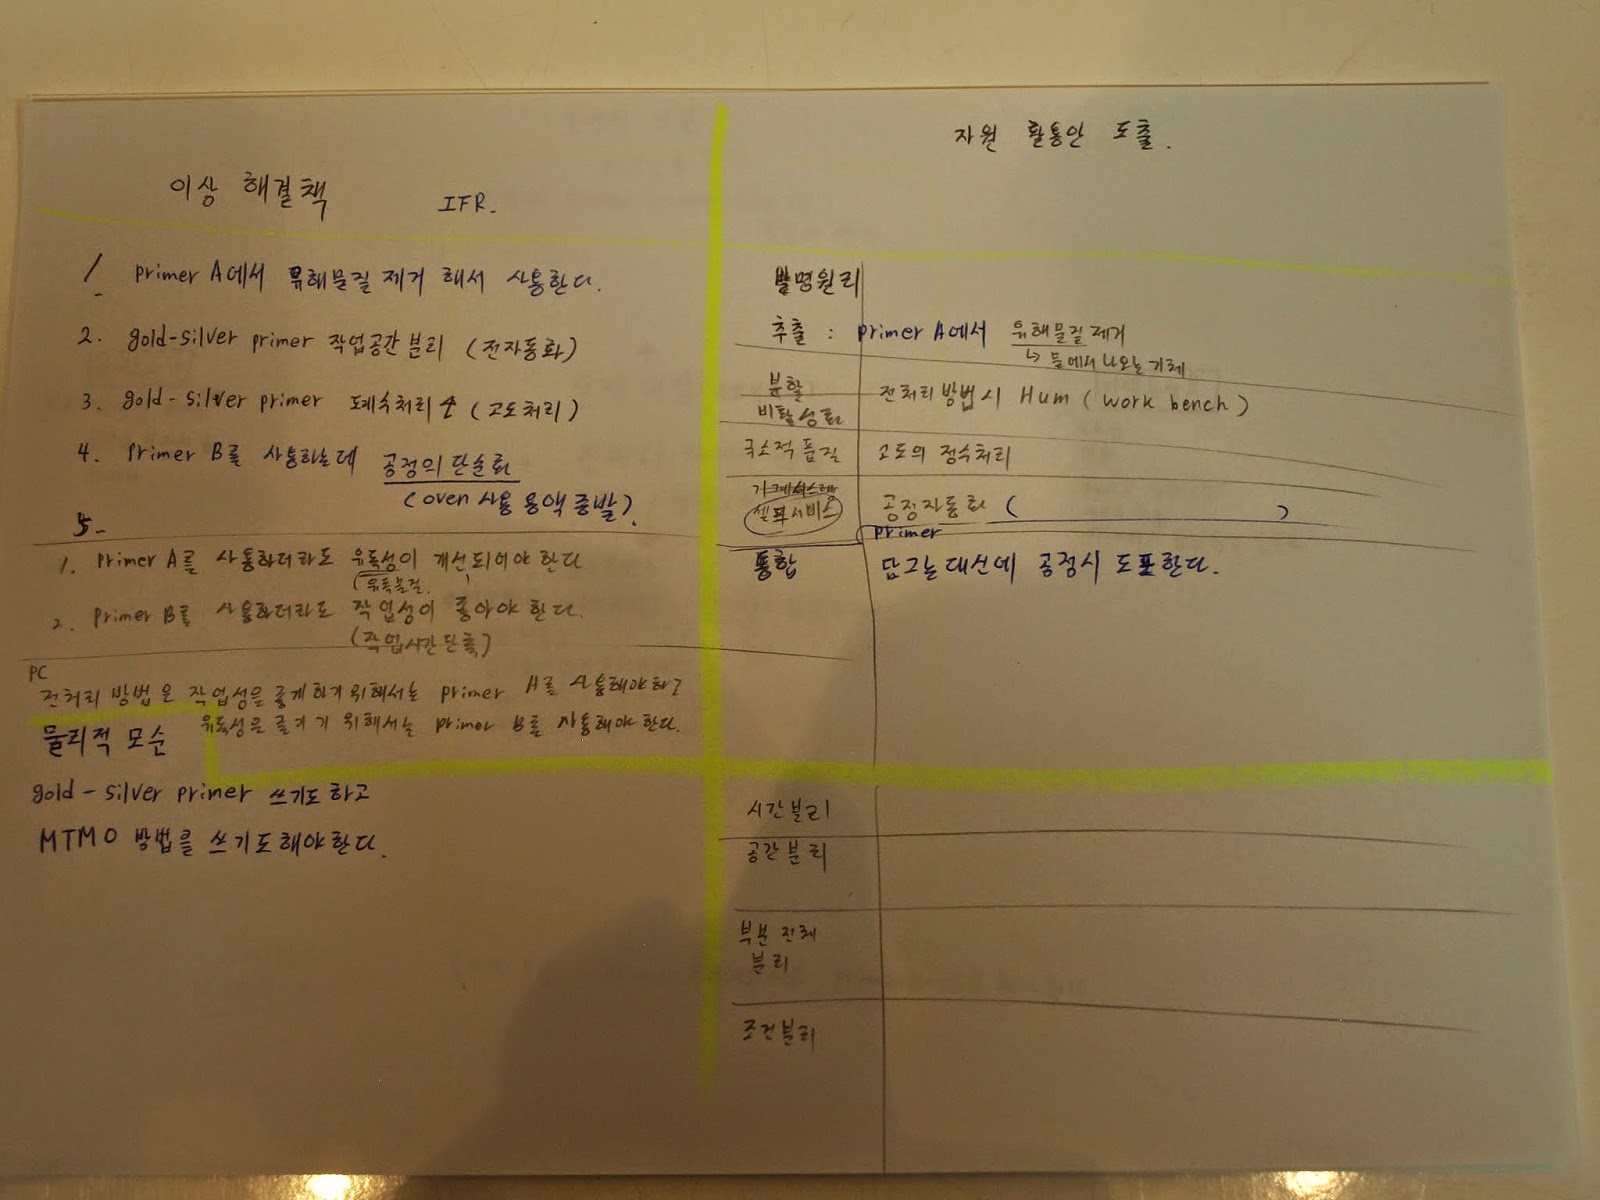 이상 해결책 IFR.
1. primer A에서 유해물질 제거 해서 사용한다.
2. gold-silver primer 작업공간 분리 (전자동화)
3. gold-silver primer 폐수처리 (고도처리)
4. primer B를 사용하는데 공정의 단순화
(oven 사용 용액 증발).
5.
1. primer A를 사용하더라도 유독성이 개선되어야 한다
(유독물질.
2. primer B를 사용하더라도 작업성이 좋아야 한다.
(작업시간 단축)
PC
전처리 방법은 작업성을 좋게 하기 위해서는 primer A를 사용해야하고
유독성은 줄기기 위해서는 primer B를 사용해야 한다.
물리적 모순
gold-silver primer 쓰기도 하고
MTMO 방법을 쓰기도해야한다.
자원 활용안 도출.
발명원리
추출 : primer A에서 유해물질 제거
↳ 물에서 나오는 기체
분할
비탈성화
전처리 방법시 Hum (work bench)
국소적 품질 고도의 정수처리
셀프서비스 공정자동화 ( )
primer
통합 담그는 대신에 공정시 도포한다.
시간분리
공간분리
부분 전체
분리
조건분리